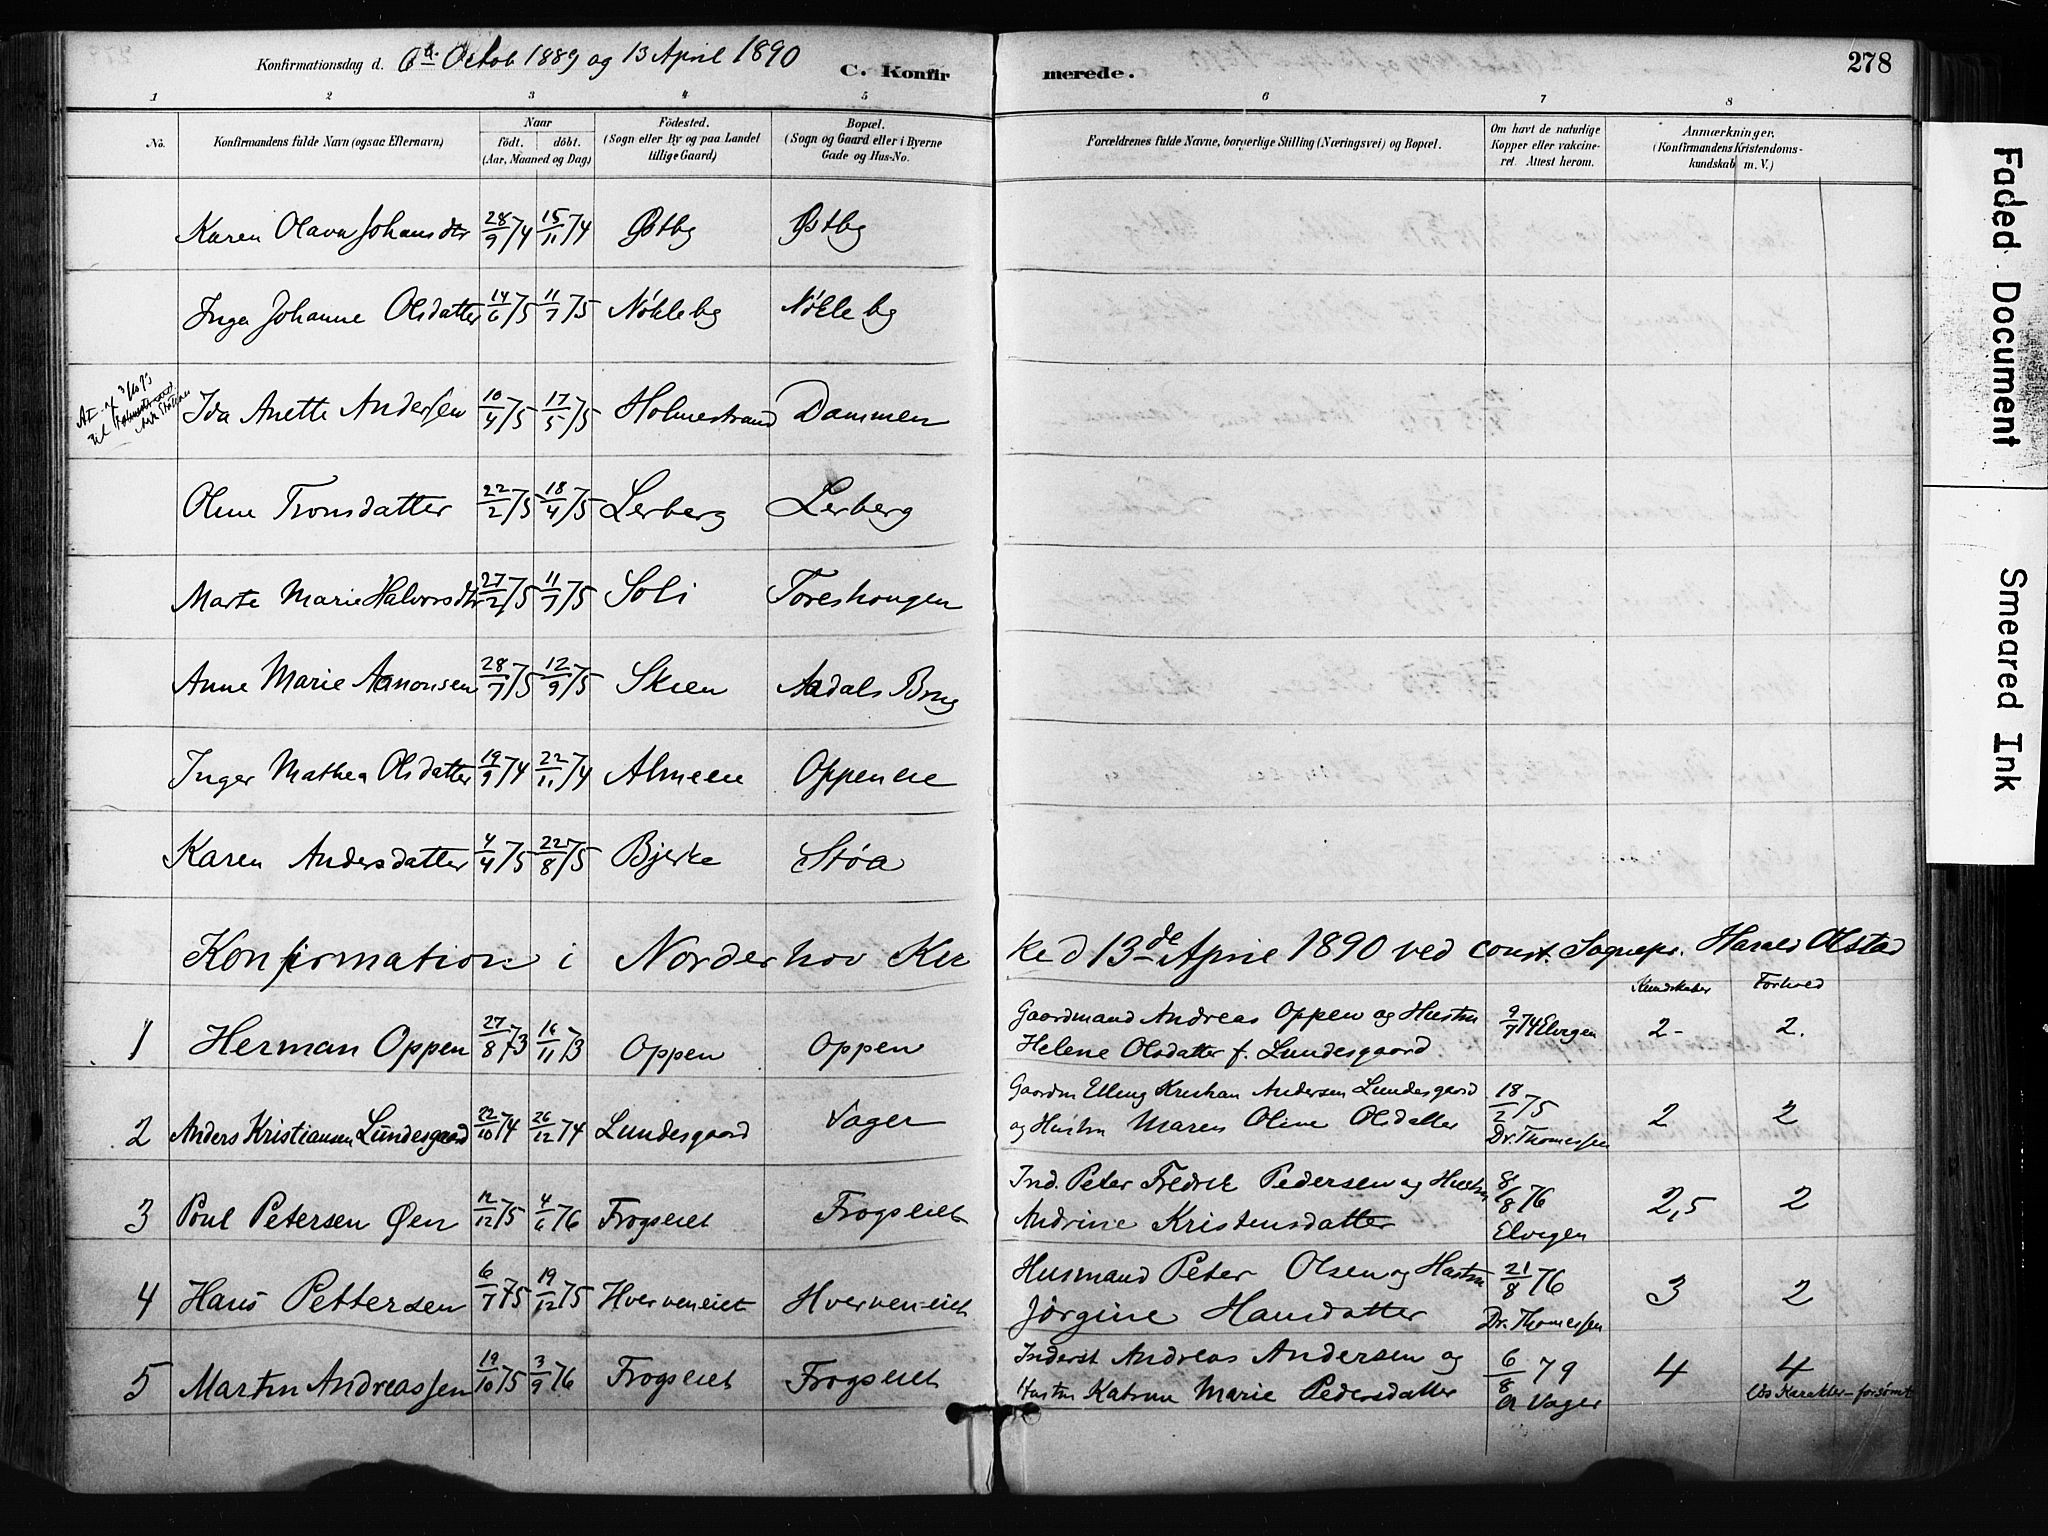 Konfirmationsdag d. 6te Octob 1889 og 13 April 1890
C. Konfirmerede.
278
1 2 3 4 5 6 7 8
No.
Konfirmandens fulde Navn (ogsaa Efternavn)
Naar
födt. döbt.
(Aar, Maaned og Dag)
Födested.
(Sogn eller By og paa Landet tillige Gaard)
Bopæl.
(Sogn og Gaard eller i Byerne Gade og Hus-No.
Forældrenes fulde Navne, borgerlige Stilling (Næringsvei) og Bopæl.
Om havt de naturlige Kopper eller vakcineret. Attest herom.
Anmærkninger.
(Konfirmandens Kristendomskundskab m. V.)
Karen Olava Johansdtr 28/9 74 15/11 74 Østby Østby
Inga Johanne Olsdatter 14/6 75 11/7 75 Nökleby Nökleby
Ida Anette Andersen 10/4 75 17/5 75 Holmestrand Dammen
Oline Tronsdatter 22/2 75 18/4 75 Lerberg Lerberg
Marte Marie Halvorsdtr 27/2 75 11/7 75 Soli Toreshougen
Anne Marie Amonsen 28/7 75 12/9 75 Skien Aadals Brug
Inger Mathea Olsdatter 19/9 74 22/11 74 Almeeie Oppeneie
Karen Andersdatter 4/4 75 22/8 75 Bjerke Støa
Konfirmation i Norderhov Kirke d 13de April 1890 ved const. Sognepr. Harald Olstad
Kundskaber Forhold
1 Herman Oppen 27/8 73 16/11 73 Oppen Oppen Gaardmand Andreas Oppen og Hustru 9/7 74 Elvegen 2- 2.
Helene Olsdatter f. Lundesgaard
2 Anders Kristiansen Lundesgaard 22/10 74 26/12 74 Lundesgaard Vager Gaardm Elling Kristian Andersen Lundesgaard 18/2 75 2 2
og Hustru Maren Oline Olsdatter Dr. Thomessen
3 Poul Petersen Øen 12/12 75 4/6 76 Frogseiet Frogseiet Ind. Peter Fredrik Pedersen og Hustru 8/8 76 2,5 2
Andrine Kristensdatter Elvegen
4 Hans Pettersen 6/7 75 19/12 75 Hverveneiet Hverven-eiet Husmand Peter Olsen og Hustru 21/8 76 3 2
Jørgine Hansdatter Dr. Thomessen
5 Martin Andreassen 19/10 75 3/9 76 Frogseiet Frogseiet Inderst Andreas Andersen og 6/8 79 4 4
Hustru Katrine Marie Pedersdatter A Vager Karakter-forsömt
Faded Document
Smeared Ink